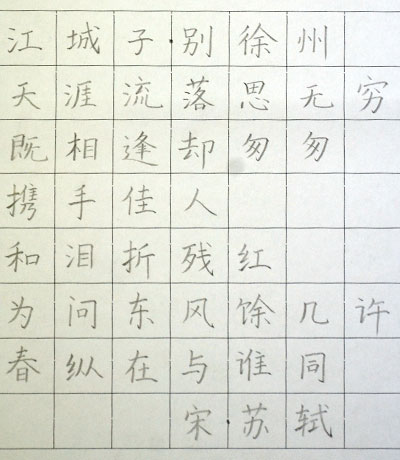 江城子·别徐州
天涯流落思无穷
既相逢却匆匆
携手佳人
和泪折残红
为问东风馀几许
春纵在与谁同
宋·苏轼